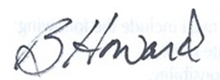 B Howard